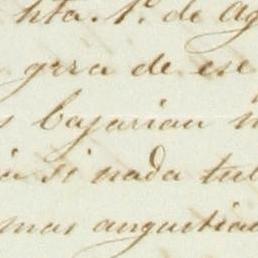 hta. 1º. de Ag
gera de ese
s bajarian n
ia si nada tu
mas angustia